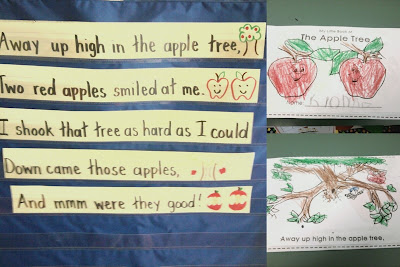 Away up high in the apple tree,
Two red apples smiled at me.
I shook that tree as hard as I could
Down came those apples,
And mmm were they good!
The Apple Tree
Away up high in the apple tree,